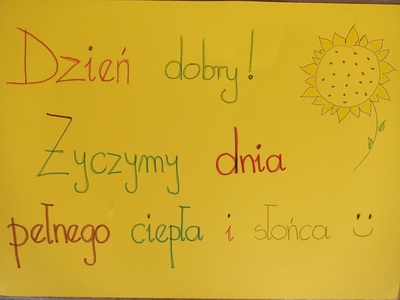 Dzień dobry!
Życzymy dnia
pełnego ciepła i słońca :)